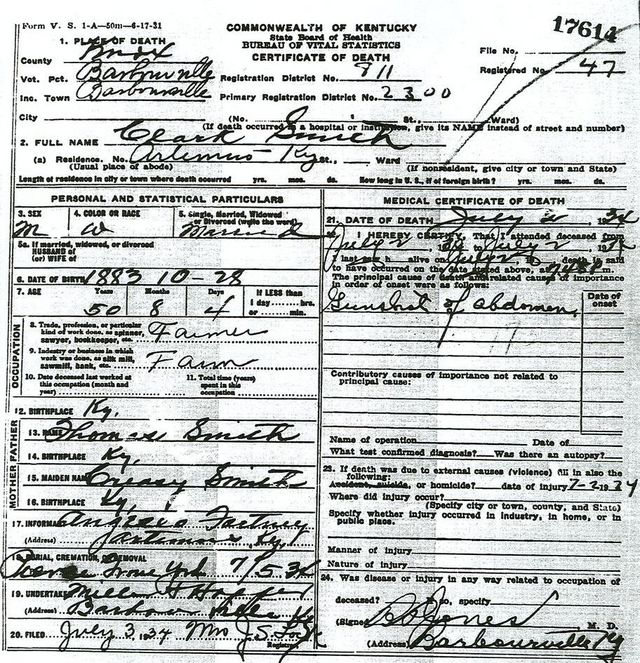 Form V. S. 1-A—50m—6-17-31
17614
COMMONWEALTH OF KENTUCKY
State Board of Health
BUREAU OF VITAL STATISTICS
CERTIFICATE OF DEATH
1. PLACE OF DEATH
County Knox
Vot. Pct. Barbourville
Inc. Town Barbourville
Registration District No. 811
Primary Registration District No. 2300
File No.
Registered No. 47
City (No. St., Ward)
(If death occurred in a hospital or institution, give its NAME instead of street and number)
2. FULL NAME Clark Smith
(a) Residence. No. Artemus Ky St., Ward
(Usual place of abode) (If nonresident, give city or town and State)
Length of residence in city or town where death occurred yrs. mos. ds. How long in U. S., if of foreign birth? yrs. mos. ds.
PERSONAL AND STATISTICAL PARTICULARS
3. SEX M
4. COLOR OR RACE W
5. Single, Married, Widowed or Divorced (write the word) Married
5a. If married, widowed, or divorced
HUSBAND of
(or) WIFE of
6. DATE OF BIRTH 1883 10 28
7. AGE Years Months Days If LESS than
1 day hrs.
or min.
50 8 4
OCCUPATION
8. Trade, profession, or particular kind of work done, as spinner, sawyer, bookkeeper, etc. Farmer
9. Industry or business in which work was done, as silk mill, sawmill, bank, etc. Farm
10. Date deceased last worked at this occupation (month and year)
11. Total time (years) spent in this occupation
12. BIRTHPLACE Ky.
FATHER
13. NAME Thomas Smith
14. BIRTHPLACE Ky.
MOTHER
15. MAIDEN NAME Smith
16. BIRTHPLACE Ky.
17. INFORMANT
(Address) Ky
18. BURIAL, CREMATION, OR REMOVAL
7/5 34
19. UNDERTAKER
(Address)
20. FILED July 3, 1934 Mrs J. S.
Registrar
MEDICAL CERTIFICATE OF DEATH
21. DATE OF DEATH July 2 1934
22. I HEREBY CERTIFY, That I attended deceased from
July 2 to July 2
I last saw h alive on July 2 death is said
to have occurred on the date stated above, at m.
The principal cause of death and related causes of importance
in order of onset were as follows:
Date of onset
Gunshot of abdomen
Contributory causes of importance not related to
principal cause:
Name of operation Date of
What test confirmed diagnosis? Was there an autopsy?
23. If death was due to external causes (violence) fill in also the
following:
Accident, suicide, or homicide? date of injury 7-2 1934
Where did injury occur?
(Specify city or town, county, and State)
Specify whether injury occurred in industry, in home, or in
public place.
Manner of injury
Nature of injury
24. Was disease or injury in any way related to occupation of
deceased? If so, specify
(Signed) Jones M. D.
(Address) Barbourville Ky